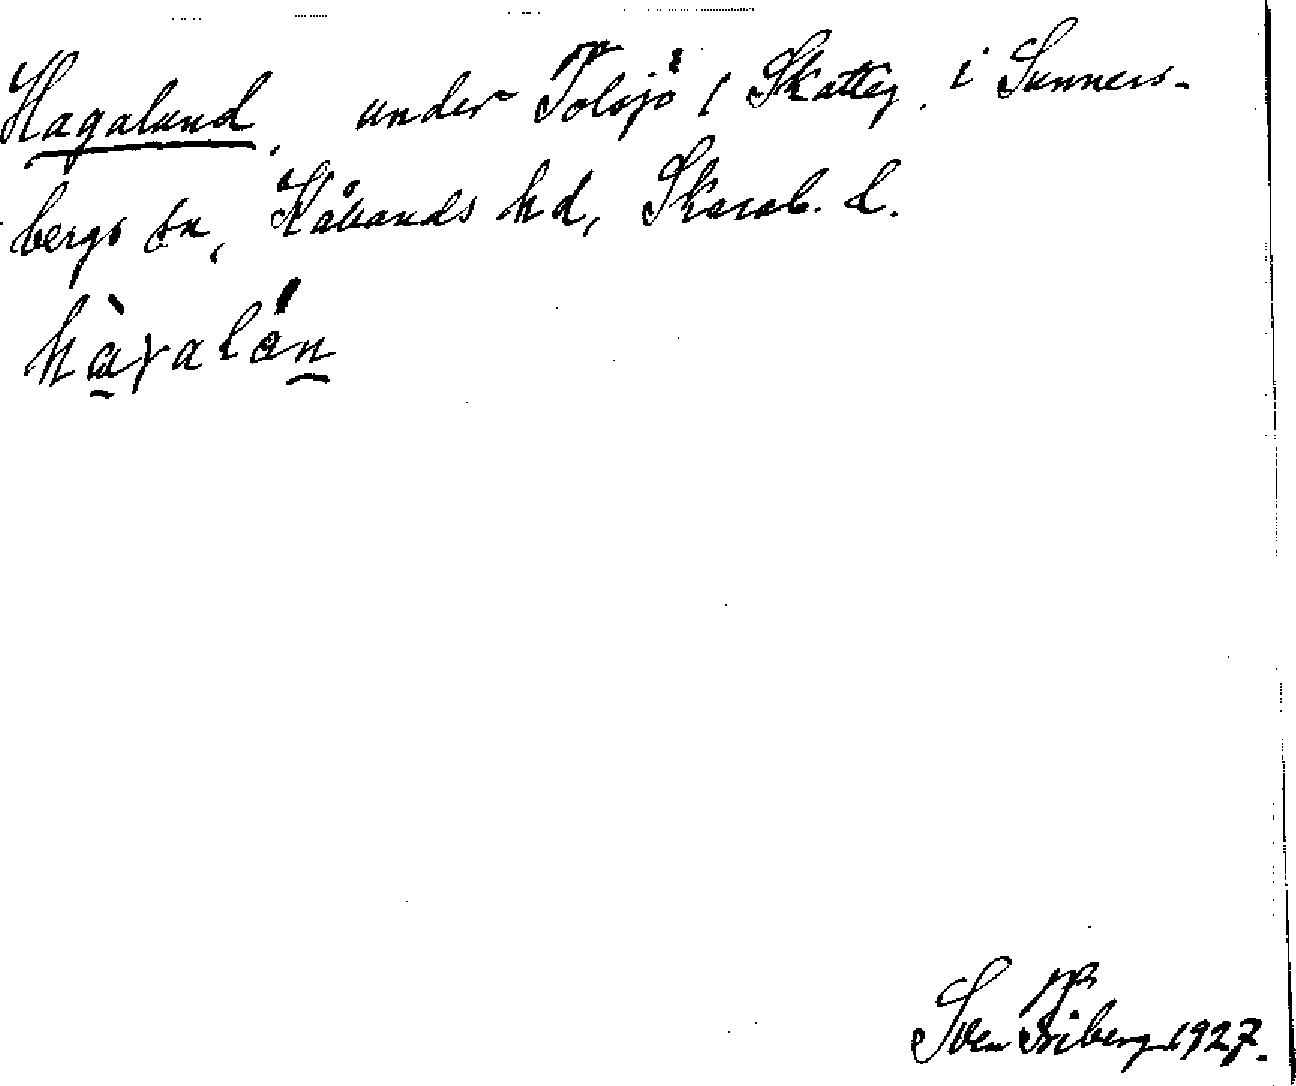 Hagalund, under Tolsjö 1 Skatteg. i Sunners-
bergs sn, Kållands hd, Skarab. l.
hàɣalán
Sven Friberg 1927.